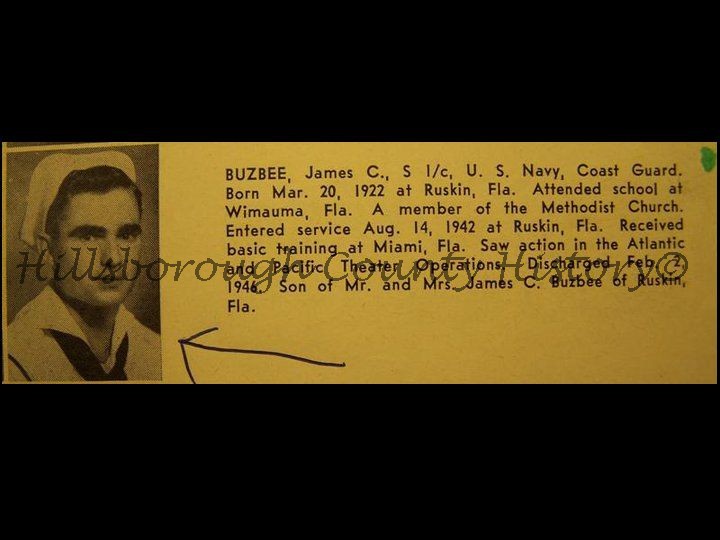 BUZBEE, James C., S 1/c, U. S. Navy, Coast Guard.
Born Mar. 20, 1922 at Ruskin, Fla. Attended school at
Wimauma, Fla. A member of the Methodist Church.
Entered service Aug. 14, 1942 at Ruskin, Fla. Received
basic training at Miami, Fla. Saw action in the Atlantic
and Pacific Theater Operations. Discharged Feb. 2,
1946. Son of Mr. and Mrs. James C. Buzbee of Ruskin,
Fla.
Hillsborough County History©